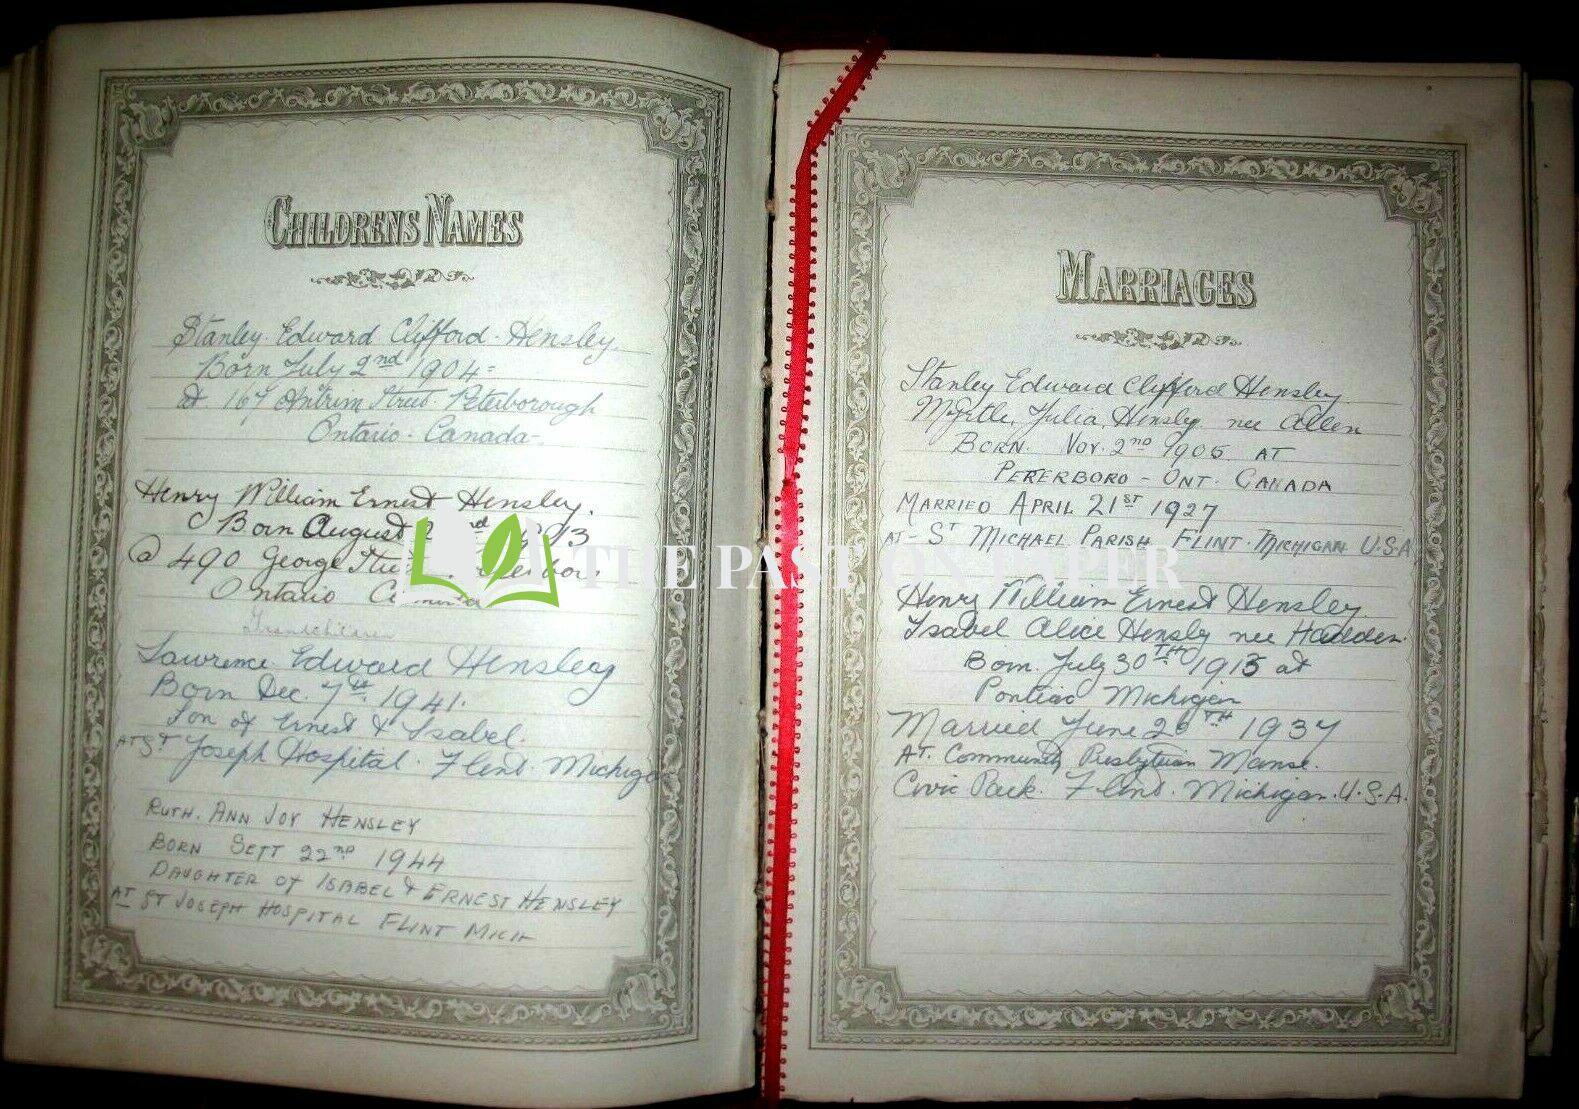 CHILDRENS NAMES
Stanley Edward Clifford Hensley
Born July 2nd 1904=
At 167 Antrim Street Peterborough
Ontario - Canada-
Henry William Ernest Hensley.
Born August
@ 490 George
Ontario
Grandchildren
Lawrence Edward Hensley
Born Dec. 7th 1941.
Son of Ernest & Isabel.
AT ST Joseph Hospital. Flint. Michigan
RUTH. ANN JOY HENSLEY
BORN SEPT 22ND 1944
DAUGHTER OF ISABEL & ERNEST HENSLEY
AT ST JOSEPH HOSPITAL FLINT MICH
MARRIAGES
Stanley Edward Clifford Hensley.
Myrtle, Julia, Hensly nee Allen
BORN. NOV. 2ND AT
PETERBORO - ONT. CANADA
MARRIED APRIL 21ST 1927
AT - ST MICHAEL PARISH FLINT. MICHIGAN U.S.A
THE PAST ON PAPER
Henry William Ernest Hensley.
Isabel Alice Hensly nee
Born. July 30TH at
Pontiac Michigan
Married June TH 1937
AT. Community Presbyterian Manse.
Civic Park. Flint. Michigan. U.S.A.